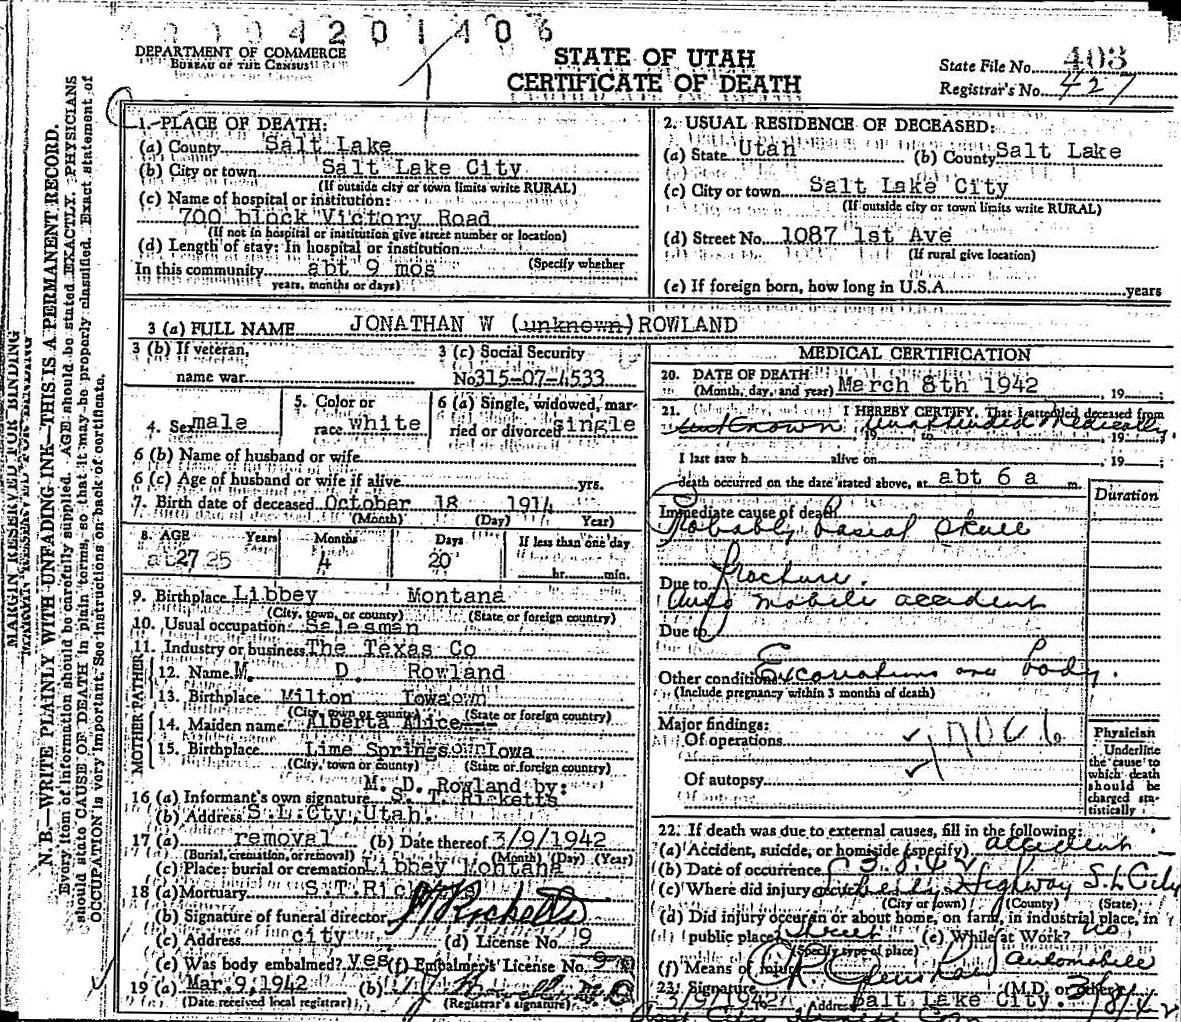 0004201406
DEPARTMENT OF COMMERCE
BUREAU OF THE CENSUS
STATE OF UTAH
CERTIFICATE OF DEATH
State File No. 403
Registrar's No. 427
MARGIN RESERVED FOR BINDING
N. B.—WRITE PLAINLY WITH UNFADING INK—THIS IS A PERMANENT RECORD.
Every item of information should be carefully supplied. AGE should be stated EXACTLY. PHYSICIANS
should state CAUSE OF DEATH in plain terms, so that it may be properly classified. Exact statement of
OCCUPATION is very important. See instructions on back of certificate.
1. PLACE OF DEATH:
(a) County Salt Lake
(b) City or town Salt Lake City
(If outside city or town limits write RURAL)
(c) Name of hospital or institution:
700 block Victory Road
(If not in hospital or institution give street number or location)
(d) Length of stay: In hospital or institution
(Specify whether
In this community abt 9 mos
years, months or days)
2. USUAL RESIDENCE OF DECEASED:
(a) State Utah (b) County Salt Lake
(c) City or town Salt Lake City
(If outside city or town limits write RURAL)
(d) Street No. 1087 1st Ave
(If rural give location)
(e) If foreign born, how long in U.S.A. years
3 (a) FULL NAME JONATHAN W (unknown) ROWLAND
3 (b) If veteran,
name war
3 (c) Social Security
No 315-07-4533
4. Sex male
5. Color or
race white
6 (a) Single, widowed, mar-
ried or divorced single
6 (b) Name of husband or wife
6 (c) Age of husband or wife if alive yrs.
7. Birth date of deceased October 18 1914
(Month) (Day) Year)
8. AGE Years Months Days If less than one day
ab 27 25 4 20 hr. min.
9. Birthplace Libbey Montana
(City, town, or county) (State or foreign country)
10. Usual occupation Salesman
11. Industry or business The Texas Co
FATHER
12. Name M. D. Rowland
13. Birthplace Milton Iowa
(City, town or county) (State or foreign country)
MOTHER
14. Maiden name Alberta Alice
15. Birthplace Lime Springs Iowa
(City, town or county) (State or foreign country)
M. D. Rowland by:
16 (a) Informant's own signature S. T. Ricketts
(b) Address S.L.Cty, Utah.
17 (a) removal (b) Date thereof 3/9/1942
(Burial, cremation, or removal) (Month) (Day) (Year)
(c) Place: burial or cremation Libbey Montana
18 (a) Mortuary S.T.Ricketts
(b) Signature of funeral director Ricketts
(c) Address city (d) License No. 9
(e) Was body embalmed? yes (f) Embalmer's License No. 9
19 (a) Mar. 9, 1942 (b)
(Date received local registrar) (Registrar's signature)
MEDICAL CERTIFICATION
20. DATE OF DEATH
(Month, day, and year) March 8th 1942, 19
21. I HEREBY CERTIFY, That I attended deceased from
unknown unattended Medically
19 to , 19
I last saw h alive on , 19
death occurred on the date stated above, at abt 6 a m.
Duration
Immediate cause of death
Probably basial skull
fracture.
Due to
Auto mobile accident
Due to
Other conditions Excoriations over body.
(Include pregnancy within 3 months of death)
Major findings:
Of operations
Of autopsy
170c6
Physician
Underline
the cause to
which death
should be
charged sta-
tistically
22. If death was due to external causes, fill in the following:
(a) Accident, suicide, or homicide (specify) accident
(b) Date of occurrence 3.8.42
(c) Where did injury occur Highway S.L. City
(City or town) (County) (State)
(d) Did injury occur in or about home, on farm, in industrial place, in
public place? Street (e) While at Work? no
(Specify type of place)
(f) Means of injury Automobile
23. Signature (M.D. or other)
3/9/1942 Address Salt Lake City. 3/8/42